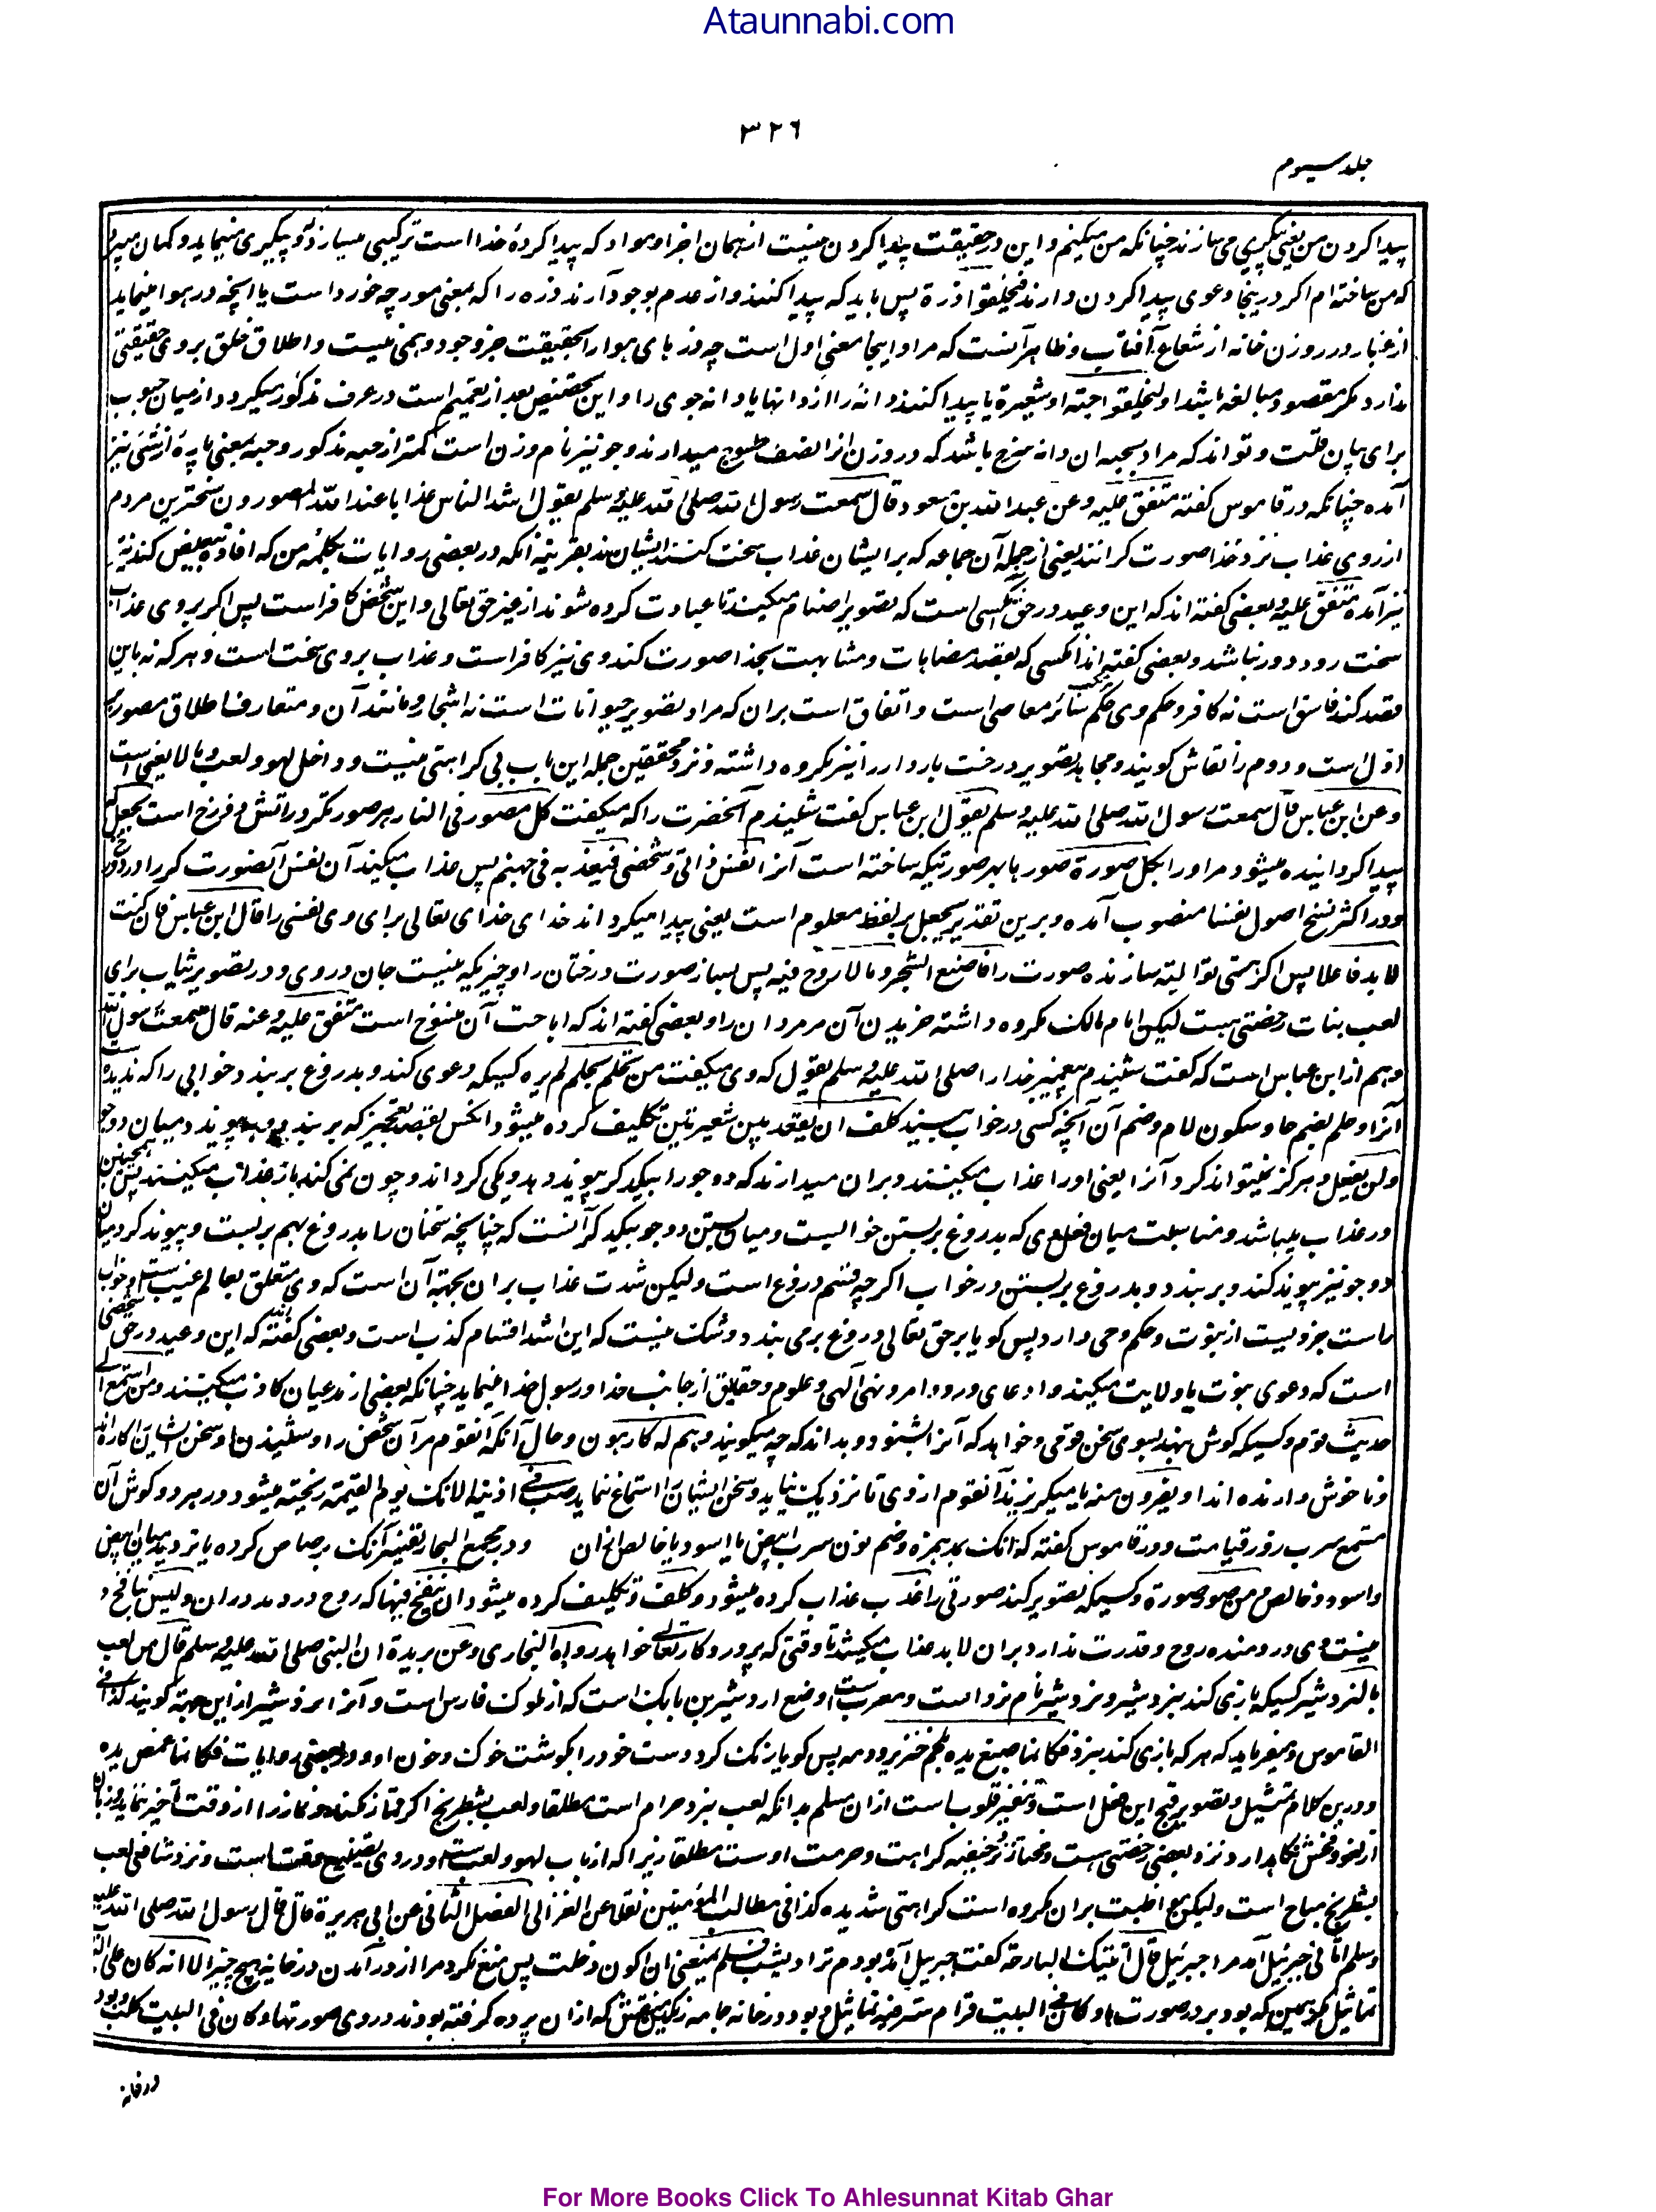 Ataunnabi.com
٣٢٦
جلد سیوم
پیدا کردن من یعنی پیکری می سازند چنانکه من میکنم و این در حقیقت پیدا کردن نیست از همان اجزا و مواد که پیدا کردۀ خدا است ترکیبی میسازد و پیکری مینماید و گمان میبرد
که من ساخته ام اگر درینجا دعوی پیدا کردن دارند فلیخلقوا ذرة پس باید که پیدا کنند و از عدم بوجود آرند ذره را که بمعنی مورچه خورد است یا آنچه در هوا مینماید
از غبار در روزن خانه از شعاع آفتاب و ظاهر آنست که مراد اینجا معنی اول است چه ذرهای هوا را بحقیقت جز وجود وهمی نیست و اطلاق خلق بر وی حقیقتی
ندارد مگر مقصود مبالغه باشد او لیخلقوا حبة او شعیرة یا پیدا کنند دانه را از دانها یا دانه جوی را و این تخصیص بعد از تعمیم است در عرف مذکور میگردد از میان حبوب
برای بیان قلت و تواند که مراد بحبه آن دانه سرخ باشد که در وزن آنرا نصف طسوج میدارند و جو نیز نام وزن است کمتر از حبه مذکور و حبه بمعنی پاره از شئ نیز
آمده چنانکه در قاموس گفته متفق علیه وعن عبد الله بن مسعود قال سمعت رسول الله صلی الله علیه وسلم یقول اشد الناس عذابا عند الله المصورون سخت‌ترین مردم
از روی عذاب نزد خدا صورت گرانند یعنی از جمله آن جماعه که بر ایشان عذاب سخت کنند ایشان اند بقرینۀ آنکه در بعضی روایات بکلمۀ من که افادۀ تبعیض کند نیز
نیز آمده متفق علیه و بعضی گفته اند که این وعید در حق کسی است که تصویر اصنام میکند تا عبادت کرده شوند از غیر حق تعالی و این شخص کافر است پس اگر بر وی عذاب
سخت رود دور نباشد و بعضی گفته اند آنکسی که بقصد مضاهات و مشابهت بخدا صورت کند وی نیز کافر است و عذاب بر وی سخت است و هر که نه باین
قصد کند فاسق است نه کافر و حکم وی حکم مرتکب سائر معاصی است و اتفاق است بر آن که مراد تصویر حیوانات است نه اشجار و مانند آن و متعارف اطلاق مصور بر
اول است و دوم را نقاش گویند و مجاهد تصویر درخت باردار را نیز مکروه داشته و نزد محققین جمله این باب بی کراهتی نیست و داخل لهو و لعب و ما لا یعنی است
وعن ابن عباس قال سمعت رسول الله صلی الله علیه وسلم یقول ابن عباس گفت شنیدم آنحضرت را که میگفت کل مصور فی النار هر صورتگر در آتش دوزخ است یجعل له
پیدا گردانیده میشود مر او را بکل صورة صورها بهر صورتیکه ساخته است آنرا نفس ذاتی و شخصی فیعذبه فی جهنم پس عذاب میکند آن نفس آن صورت گر را در دوزخ
و در اکثر نسخ اصول نفسا منصوب آمده و برین تقدیر یجعل بر لفظ معلوم است یعنی پیدا میگرداند خدای تعالی برای وی نفسی را قال ابن عباس فان کنت
لا بد فاعلا پس اگر هستی تو البته سازنده صورت را فاصنع الشجر وما لا روح فیه پس بساز صورت درختان را و چیزیکه نیست جان در وی و در تصویر ثیاب برای
لعب بنات رخصتی هست لیکن امام مالک مکروه داشته خریدن آن مر مردان را و بعضی گفته اند که اباحت آن منسوخ است متفق علیه وعنه قال سمعت رسول الله
و هم از ابن عباس است که گفت شنیدم پیغمبر خدا را صلی الله علیه وسلم یقول که وی میگفت من تحلم بحلم لم یره کسیکه دعوی کند و بدروغ بربندد خوابی را که ندیده است
آنرا و حلم بضم حا و سکون لام و ضم آن آنچه کسی در خواب بیند کلف ان یعقد بین شعیرتین تکلیف کرده میشود آنکس بقصد تعجیز که بربندد و پیوند دهد میان دو جو
ولن یفعل و هرگز نمیتواند کرد آنرا یعنی او را عذاب میکنند و بر آن میدارند که دو جو را بیکدیگر پیوند دهد و یکی گرداند و چون نمی کند باز عذاب میکنند پس همچنین
در عذاب میباشد و مناسبت میان فعل وی که بدروغ بربستن خوابیست و میان بستن دو جو بیکدیگر آنست که چنانچه سخنان را بدروغ بهم بربست و پیوند کرد میان
دو جو نیز پیوند کند و بربندد و بدروغ بربستن در خواب اگرچه قسم دروغ است ولیکن شدت عذاب بر آن بجهت آن است که وی متعلق بعالم غیب است و خواب
راست جزویست از نبوت و حکم وحی دارد پس گویا بر حق تعالی دروغ برمی بندد و شک نیست که این اشد اقسام کذب است و بعضی گفته اند که این وعید در حق شخصی
است که دعوی نبوت یا ولایت میکند و ادعای ورود امر و نهی الهی و علوم و حقایق از جانب خدا و رسول خدا مینماید چنانکه بعضی از مدعیان کاذب میکنند ومن استمع الی
حدیث قوم و کسیکه گوش بنهد بسوی سخن قومی و خواهد که آنرا بشنود و بداند که چه میگویند وهم له کارهون و حال آنکه آنقوم مر آن شخص را و شنیدن او سخن ایشان را کاره اند
و ناخوش دارنده اند او یفرون منه یا میگریزند آنقوم از وی تا نزدیک نیاید و سخن ایشان را استماع ننماید صب فی اذنیه الآنک یوم القیمة ریخته میشود در هر دو گوش آن
مستمع سرب روز قیامت و در قاموس گفته که آنک بمد همزه و ضم نون سرب ابیض یا اسود یا خالص از آن و در مجمع البحار تفسیر آنک برصاص کرده یا تردید میان ابیض
و اسود و خالص ومن صور صورة و کسیکه تصویر کند صورتی را عذب عذاب کرده میشود وکلف و تکلیف کرده میشود ان ینفخ فیها که روح دردمد در آن ولیس بنافخ و
نیست وی دردمنده روح و قدرت ندارد بر آن لابد عذاب میکشد تا وقتی که پروردگار تعالی خواهد رواه البخاری وعن بریدة ان النبی صلی الله علیه وسلم قال من لعب
بالنردشیر کسیکه بازی کند بنردشیر و نردشیر نام نرد است و معرب است وضع اردشیر بن بابک است که از ملوک فارس است و آنرا نردشیر از این جهة گویند کذا فی
القاموس و میفرماید که هر که بازی کند بنرد فکانما صبغ یده بلحم خنزیر ودمه پس گویا رنگ کرد دست خود را بگوشت خوک و خون او و در بعضی روایات فکانما غمس یده
و درین کلام تمثیل و تصویر قبح این فعل است و تنفیر قلوب است از آن مسلم بدانکه لعب بنرد حرام است مطلقا و لعب بشطرنج اگر قمار نکند و نماز را از وقت تأخیر ننماید و زبان
از لغو و فحش نگاهدارد نزد بعضی رخصتی هست و مختار نزد حنفیه کراهت و حرمت اوست مطلقا زیرا که از باب لهو و لعب است و در وی تضییع وقت است و نزد شافعی لعب
بشطرنج مباح است ولیکن مواظبت بر آن مکروه است کراهتی شدیده کذا فی مطالب المؤمنین نقلا عن الغزالی الفصل الثانی عن ابی هریرة قال قال رسول الله صلی الله علیه
وسلم اتانی جبرئیل آمد مرا جبرئیل قال اتیتک البارحة گفت جبرئیل آمده بودم ترا دیشب فلم یمنعنی ان اکون دخلت پس منع نکرد مرا از درآمدن در خانه هیچ چیز الا انه کان علی الباب
تماثیل مگر همین که بود بر در صورتها وکان فی البیت قرام ستر فیه تماثیل و بود در خانه جامه رنگین منقش که از آن پرده گرفته بودند در وی صورتها وکان فی البیت کلب و بود
در خانه
For More Books Click To Ahlesunnat Kitab Ghar